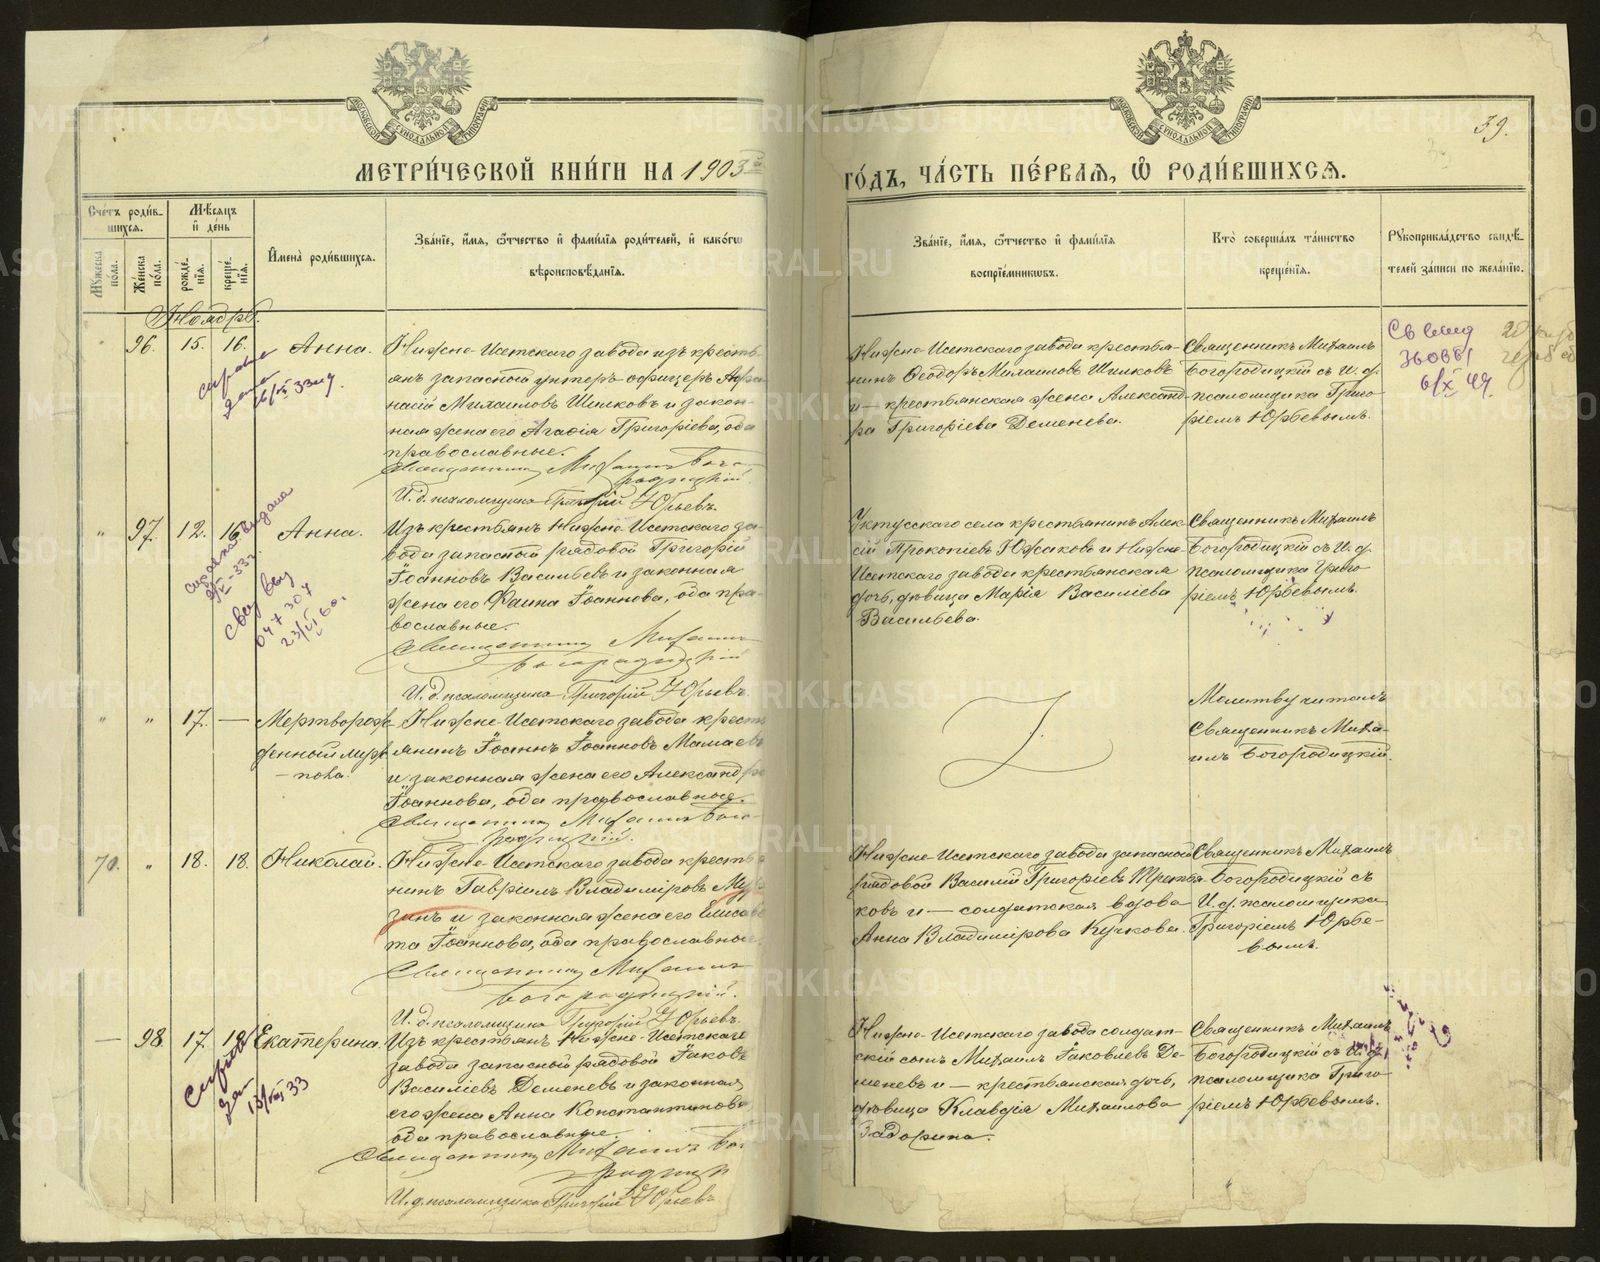 39.
МЕТРИ́ЧЕСКОЙ КНИ́ГИ НА 1903й
ГО́ДЪ, ЧА́СТЬ ПЕ́РВАЯ, Ѡ РОДИ́ВШИХСЯ.
Сче́тъ роди́в-
шихся.
Мꙋ́жеска
по́ла.
Же́нска
по́ла.
Мѣ́сяцъ
и де́нь
рожде́-
нїя.
креще́-
нїя.
Имена̀ роди́вшихся.
Зва́нїе, и́мя, ѻ́тчество и фами́лїя роди́телей, и како́гѡ
вѣроисповѣ́данїя.
Зва́нїе, и́мя, ѻ́тчество и фами́лїя
воспрїе́мникѡвъ.
Кто̀ соверша́лъ та́инство
креще́нїя.
Рꙋкоприкла́дство свидѣ́-
телей за́писи по жела́нїю.
Ноябрь.
96. 15. 16. Анна.
Нижне-Исетскаго завода изъ кресть-
янъ запасной унтеръ-офицеръ Афа-
насій Михаиловъ Шилковъ и закон-
ная жена его Агафія Григоріева, оба
православные.
Священникъ Михаилъ Бого-
родицкій.
И. д. псаломщика Григорій Юрьевъ.
Нижне-Исетскаго завода крестья-
нинъ Ѳеодоръ Михаиловъ Шилковъ
и — крестьянская жена Александ-
ра Григоріева Деменева.
Священникъ Михаилъ
Богородицкій съ И. д.
псаломщика Григо-
ріемъ Юрьевымъ.
" 97. 12. 16. Анна.
Изъ крестьянъ Нижне-Исетскаго за-
вода запасной рядовой Григорій
Іоанновъ Васильевъ и законная
жена его Фаина Іоаннова, оба пра-
вославные.
Священникъ Михаилъ
Богородицкій
И. д. псаломщика Григорій Юрьевъ.
Уктусскаго села крестьянинъ Алек-
сій Прокопіевъ Южаковъ и Нижне-
Исетскаго завода крестьянская
дочь, дѣвица Марія Василіева
Васильева.
Священникъ Михаилъ
Богородицкій съ И. д.
псаломщика Григо-
ріемъ Юрьевымъ.
" " 17. — Мертворож-
денный муж.
пола.
Нижне-Исетскаго завода кресть-
янинъ Іоаннъ Іоанновъ Мамаевъ
и законная жена его Александра
Іоаннова, оба православные.
Священникъ Михаилъ Бого-
родицкій.
Молитву читалъ
Священникъ Миха-
илъ Богородицкій.
70. " 18. 18. Николай.
Нижне-Исетскаго завода крестья-
нинъ Гавріилъ Владиміровъ Мур-
зинъ и законная жена его Елисаве-
та Іоаннова, оба православные.
Священникъ Михаилъ
Богородицкій.
И. д. псаломщика Григорій Юрьевъ.
Нижне-Исетскаго завода запасной
рядовой Василій Григоріевъ Третья-
ковъ и — солдатская вдова
Анна Владимірова Кучкова.
Священникъ Михаилъ
Богородицкій съ
И. д. псаломщика
Григоріемъ Юрье-
вымъ.
— 98. 17. 19. Екатерина.
Изъ крестьянъ Нижне-Исетскаго
завода запасный рядовой Іаковъ
Василіевъ Деменевъ и законная
его жена Анна Константинова,
оба православные.
Священникъ Михаилъ Бого-
родицкій
И. д. псаломщика Григорій Юрьевъ
Нижне-Исетскаго завода солдат-
скій сынъ Михаилъ Іаковлевъ Де-
меневъ и — крестьянская дочь,
дѣвица Клавдія Михаилова
Задорина.
Священникъ Михаилъ
Богородицкій съ И. д.
псаломщика Григо-
ріемъ Юрьевымъ.
METRIKI.GASO-URAL.RU